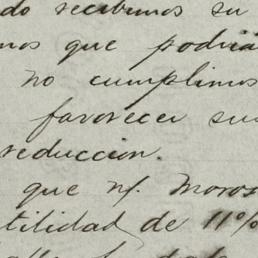 do recibimos su
mos que podria
no cumplimos
favorecer su
reduccion.
que n/. Moros
tilidad de 11%